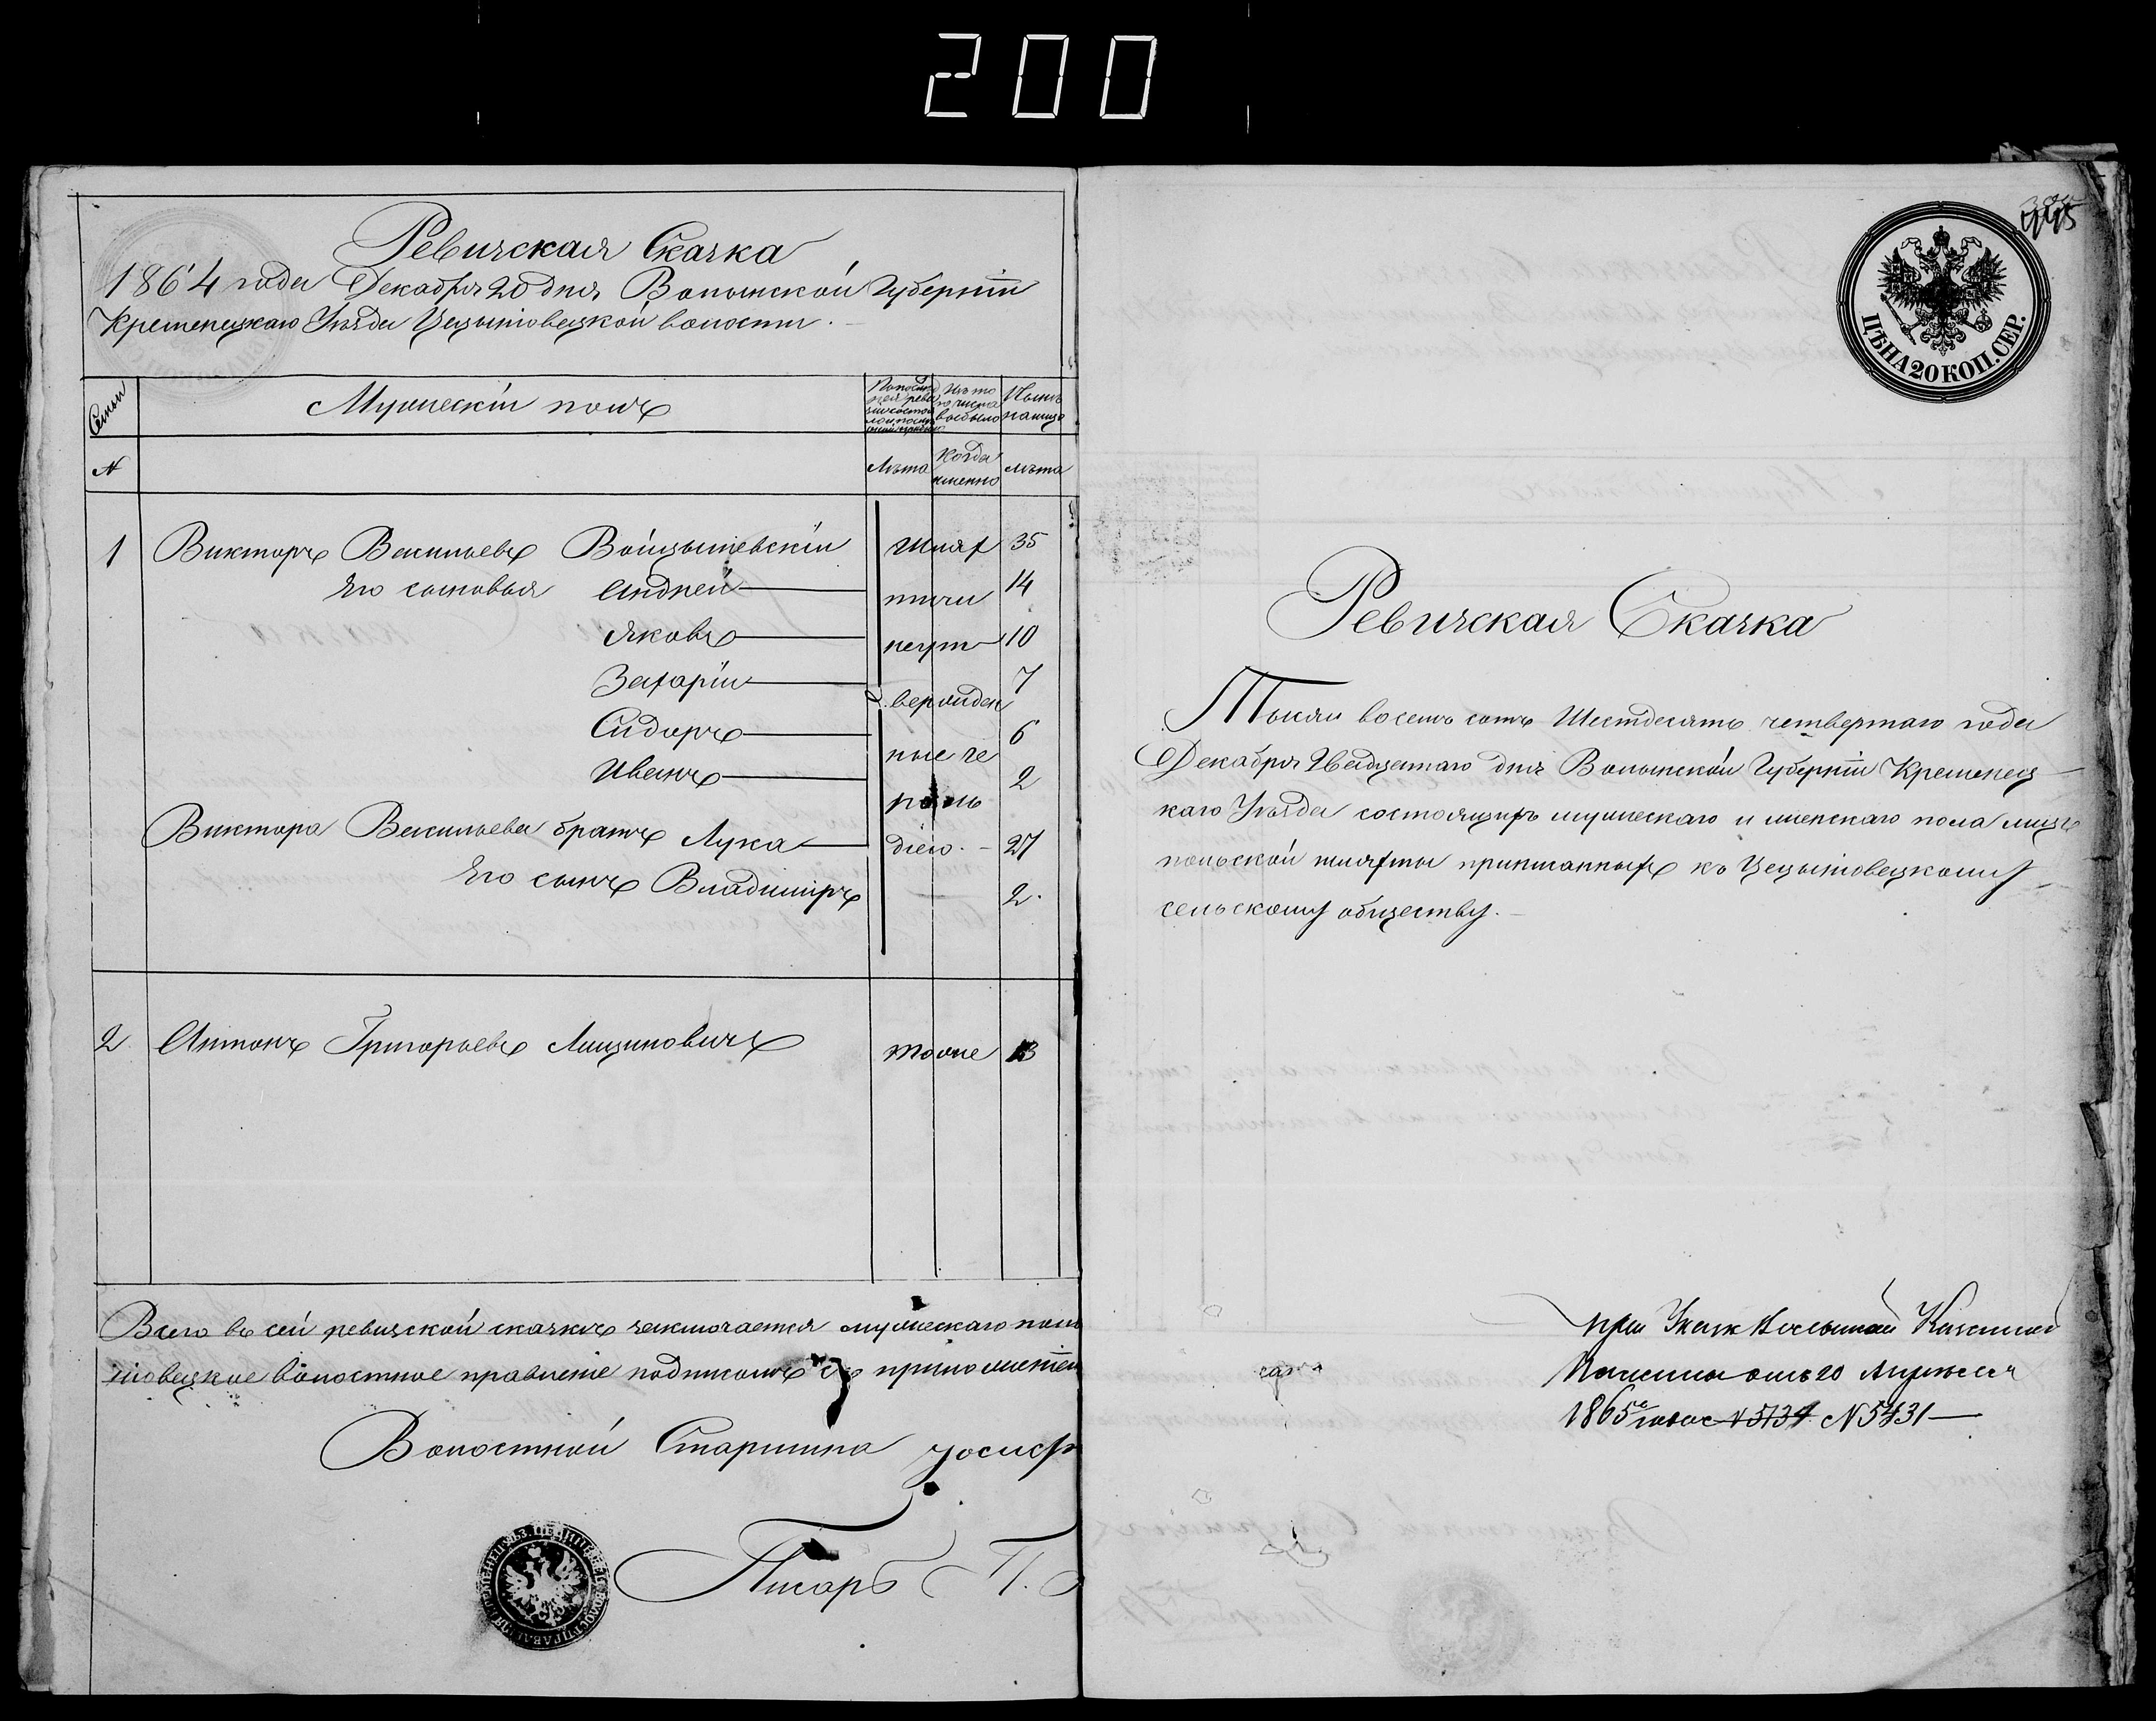 200
Ревизская Сказка
1864 года Декабря 20 дня Волынской Губерніи
Кременецкаго Уѣзда Цецыніовецкой волости.
Семьи
Мужескій полъ
Изъ того числа выбыло
Нынѣ на лицо
№
Лѣта
Когда именно
лѣта
1 Викторъ Васильевъ Войцышевскій Шлях 35
Его сыновья Андрей тичи 14
Яковъ неут 10
Захарій вержден 7
Сидоръ ные ге 6
Иванъ рольд 2
Виктора Васильева братъ Лука діею. 27
Его сынъ Владиміръ 2.
2 Антонъ Григорьевъ Лищиновичъ тоже 13
Всего въ сей ревизской сказкѣ заключается мужескаго пола
ніовецкое волостное правленіе подписомъ съ приложеніем
Волостной Старшина Іосиф
Писарь П.
445
ЦѢНА 20 КОП. СЕР.
Ревизская Сказка
Тысяч восемь сотъ Шестдесятъ четвертаго года
Декабря Двадцатаго дня Волынской Губерніи Кременец
каго Уѣзда состоящихъ мужескаго и женскаго пола лицъ
польской шляхты приписанныхъ къ Цецыніовецкому
сельскому обществу.
при Указѣ Волынской Казенной
Палаты отъ 20 Апрѣля
1865 года N 5134 N 5431